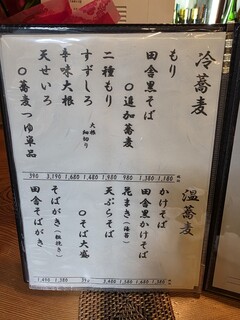 冷蕎麦
もり
田舎黒そば
○追加蕎麦
二種もり
すずしろ
大根細切り
辛味大根
天せいろ
○蕎麦つゆ単品
1,180
1,380
980
1,680
1,480
1,680
3,190
390
温蕎麦
かけそば
田舎黒かけそば
花まき(海苔)
天ぷらそば
○そば大盛
そばがき(粗挽き)
田舎そばがき